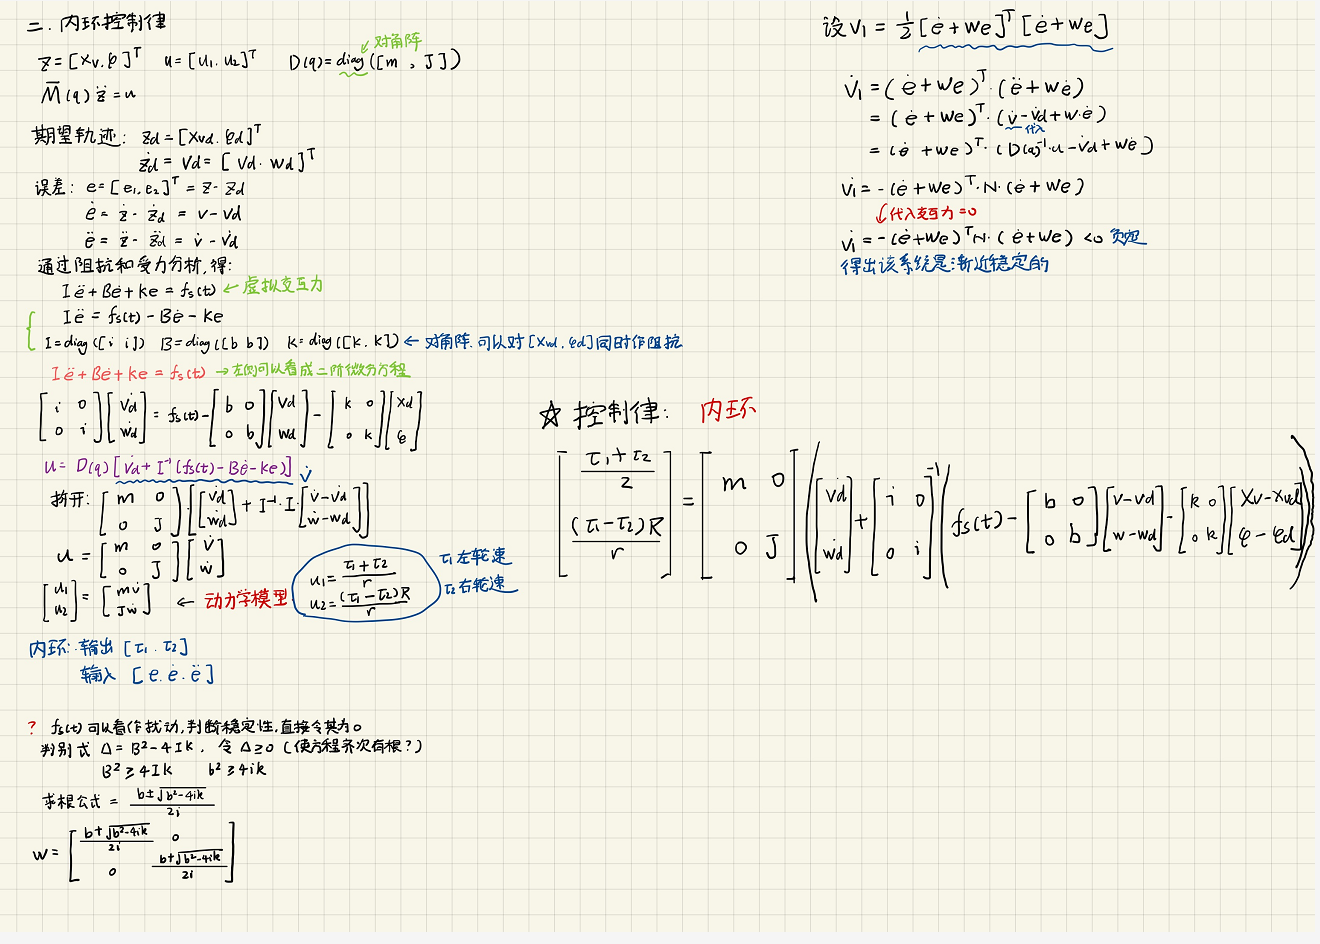 二. 内环控制律
z = [Xv. φ]ᵀ u = [u₁. u₂]ᵀ D(q) = diag([m , J])
对角阵
M̅(q) z̈ = u
期望轨迹: zd = [Xvd. φd]ᵀ
żd = Vd = [Vd. wd]ᵀ
误差: e = [e₁, e₂]ᵀ = z - zd
ė = ż - żd = v - vd
ë = z̈ - z̈d = v̇ - v̇d
通过阻抗和受力分析, 得:
Ië + Bė + ke = fs(t) ← 虚拟交互力
Ië = fs(t) - Bė - ke
I = diag([i i]) B = diag([b b]) k = diag([k. k]) ← 对角阵. 可以对[Xvd. φd]同时作阻抗
Ië + Bė + ke = fs(t) → 左侧可以看成二阶微分方程
[i 0; 0 i] [v̇d; ẇd] = fs(t) - [b 0; 0 b] [Vd; wd] - [k 0; 0 k] [xd; φ]
u = D(q) [v̇d + I⁻¹(fs(t) - Bė - ke)] v̇
拆开: [m 0; 0 J] · [[v̇d; ẇd] + I⁻¹·I· [v̇ - v̇d; ẇ - ẇd]]
u = [m 0; 0 J] [v̇; ẇ]
[u₁; u₂] = [mv̇; Jẇ] ← 动力学模型
u₁ = (τ₁ + τ₂)/r
u₂ = (τ₁ - τ₂)R/r
τ₁ 左轮速
τ₂ 右轮速
内环: 输出 [τ₁. τ₂]
输入 [e. ė. ë]
? fs(t) 可以看作扰动, 判断稳定性, 直接令其为0
判别式 Δ = B² - 4Ik . 令 Δ ≥ 0 (使方程齐次有根?)
B² ≥ 4Ik b² ≥ 4ik
求根公式 = (b ± √(b² - 4ik))/2i
w = [(b + √(b² - 4ik))/2i 0; 0 (b + √(b² - 4ik))/2i]
设 V₁ = ½ [ė + we]ᵀ [ė + we]
V̇₁ = (ė + we)ᵀ · (ë + wė)
= (ė + we)ᵀ · (v̇ - v̇d + w·ė)
代入
= (ė + we)ᵀ · (D(q)⁻¹·u - v̇d + wė)
V̇₁ = -(ė + we)ᵀ·N·(ė + we)
代入交互力 = 0
V̇₁ = -(ė + we)ᵀN·(ė + we) < 0 负定
得出该系统是渐近稳定的
☆ 控制律: 内环
[(τ₁ + τ₂)/2; (τ₁ - τ₂)R/r] = [m 0; 0 J] ([v̇d; ẇd] + [i 0; 0 i]⁻¹ (fs(t) - [b 0; 0 b] [v - vd; w - wd] - [k 0; 0 k] [Xv - Xvd; φ - φd]))